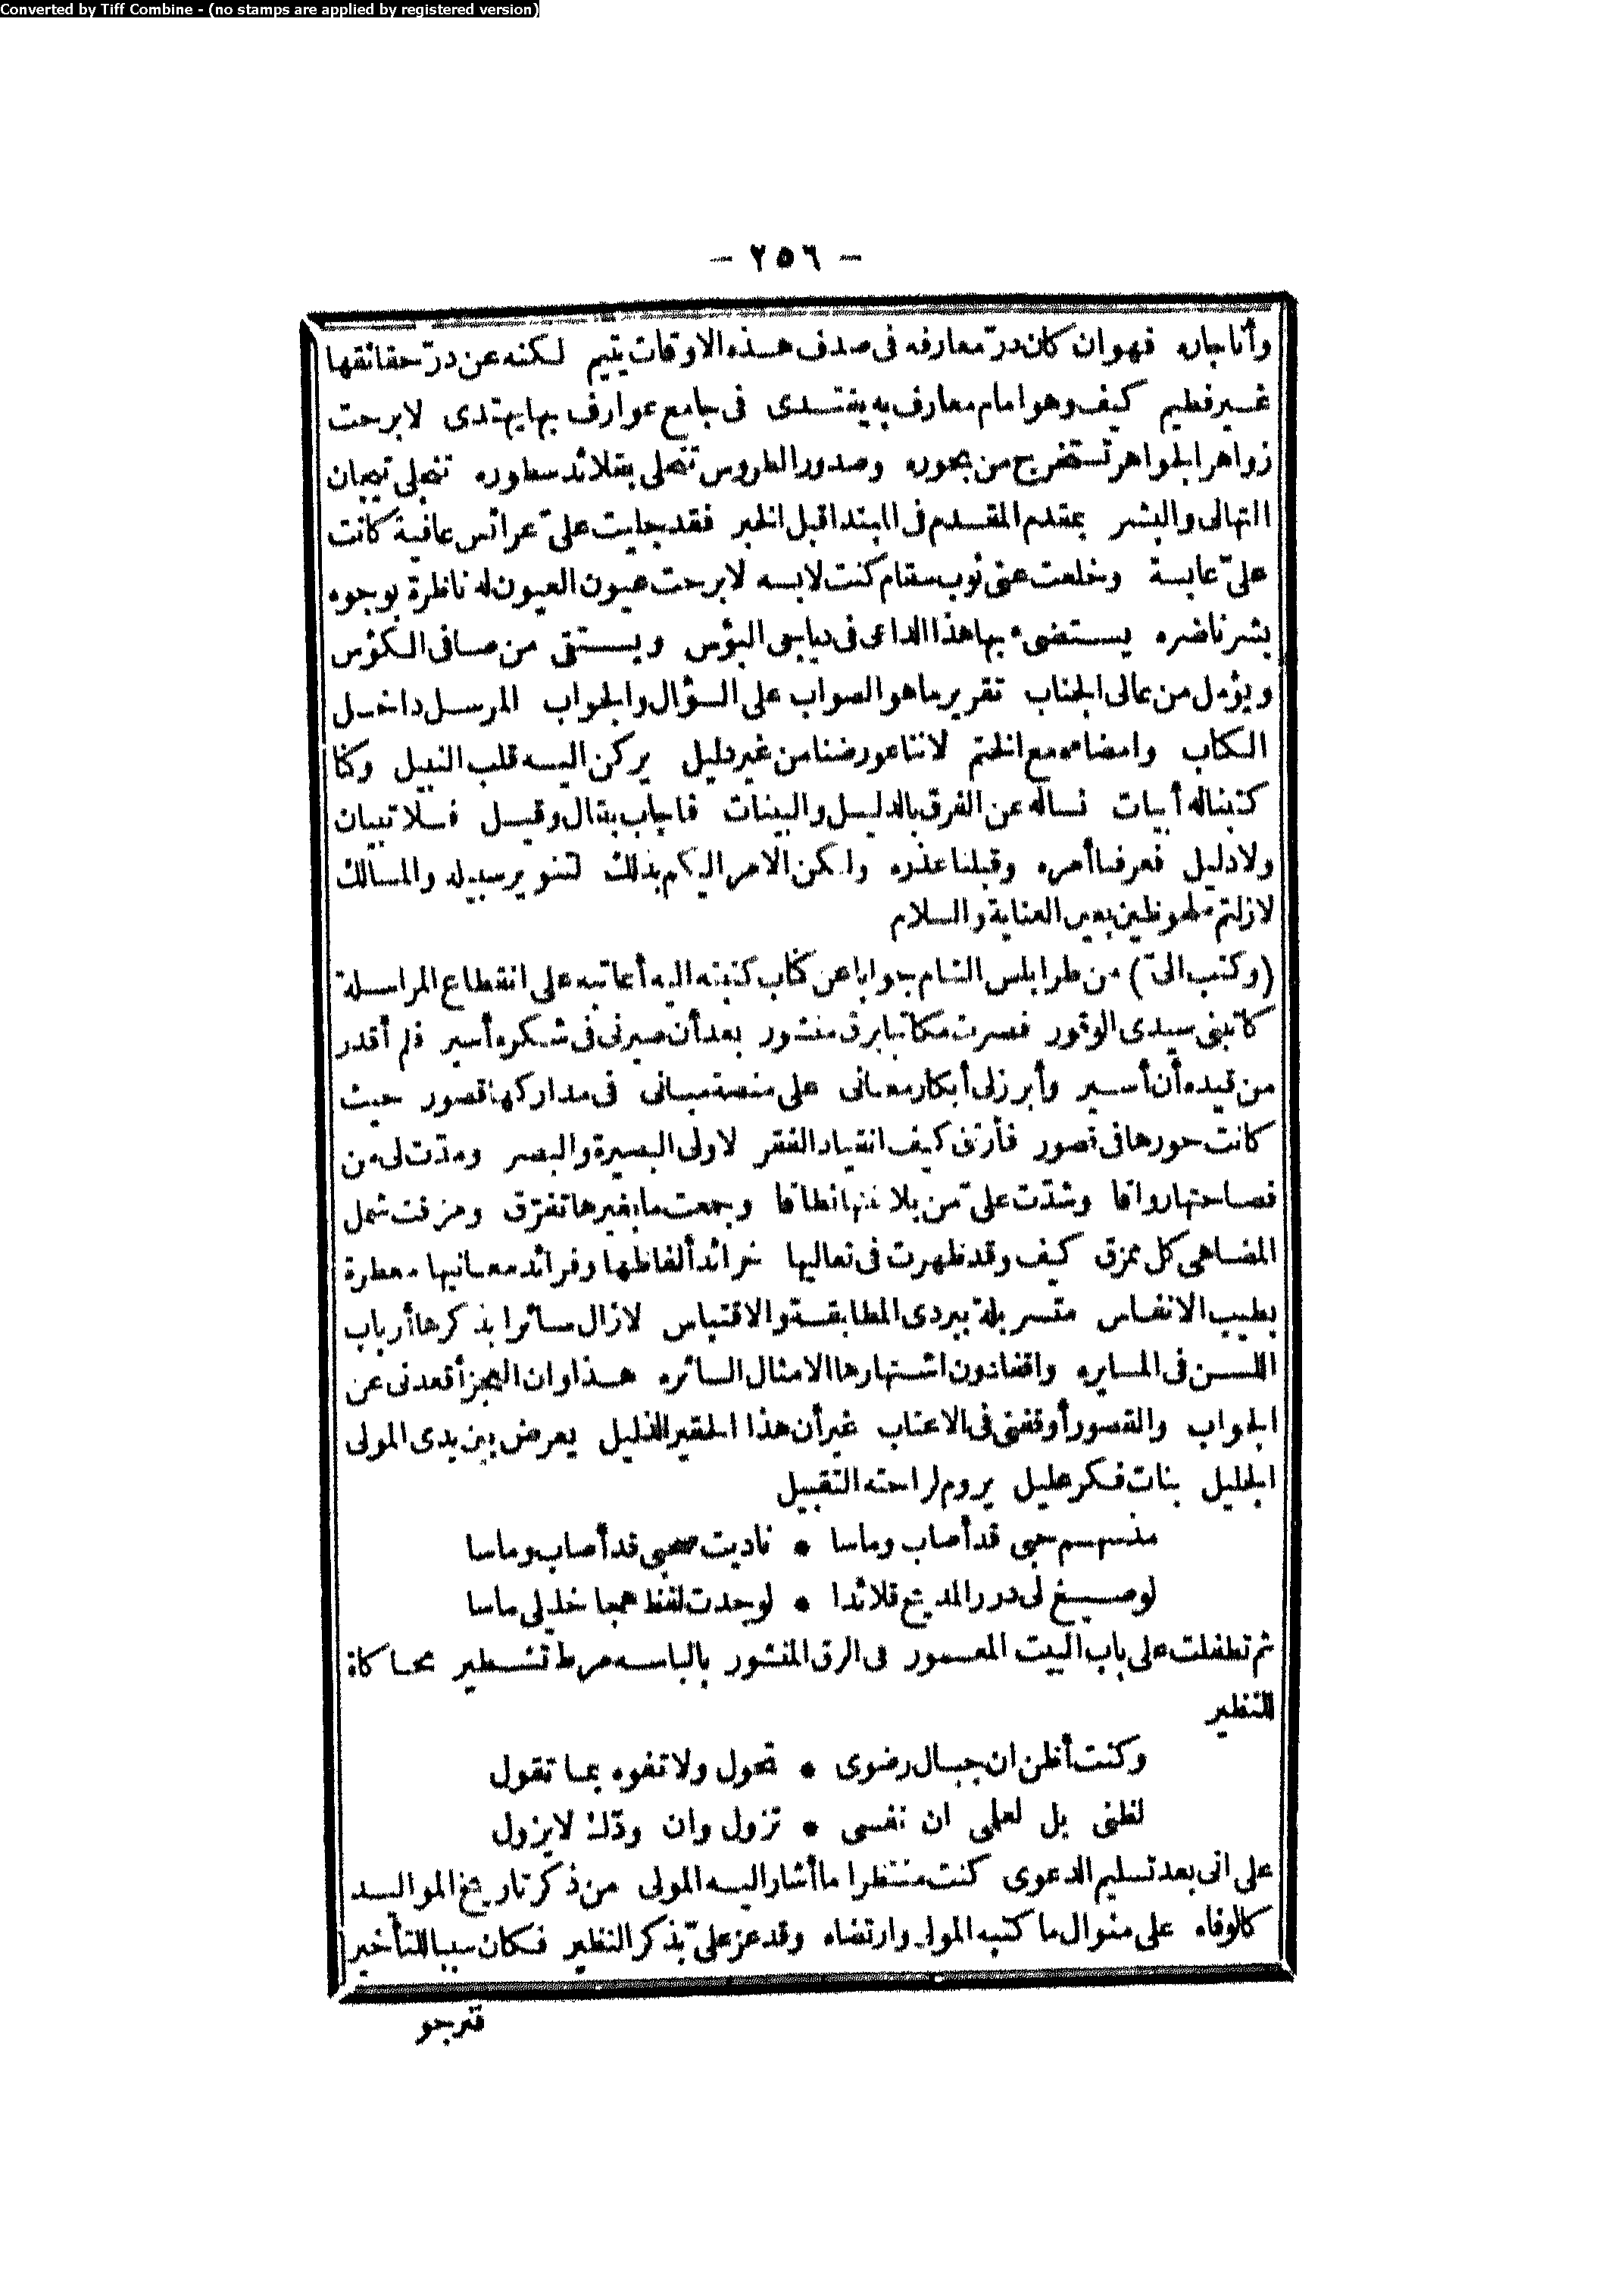 Converted by Tiff Combine - (no stamps are applied by registered version)
- ٢٥٦ -
وأنا جاره فهو ان كان درّ معارفه فى صدف هذه الاوقات يتيم لكنه عن درّ حقائقها
غير فطيم كيف وهو امام معارف به يقتدى فى جامع عوارف بها يهتدى لا برحت
زواهر الجواهر تستخرج من بحوره وصدور الطروس تتحلى بقلائد سطوره تنجلى تيجان
التهانى والبشر بمقدم المقدم فى المبتدا قبل الخبر فقد جليت علىّ عرائس عافية كانت
علىّ عابسة وخلعت عنى ثوب سقام كنت لابسه لا برحت عيون العيون له ناظرة بوجوه
بشر ناضره يستضىء بها هذا الداعى فى دياجى البؤس ويستقى من صافى الكؤس
ويؤمل من عالى الجناب تقرير ما هو الصواب على السؤال والجواب المرسل داخل
الكتاب وامضاءه مع الختم لاننا عورضنا من غير دليل يركن اليه قلب النبيل وكنا
كتبنا له أبيات نساله عن الفرق بالدليل والبينات فاجاب بقال وقيل فلا تبيان
ولا دليل فعرفنا أمره وقبلنا عذره ولكن الامر اليكم بذلك لتنوير سبيله والمسالك
لازلتم ملحوظين بعين العناية والسلام
(وكتب الىّ) من طرابلس الشام جوابا عن كتاب كتبته اليه أعاتبه على انقطاع المراسلة
كاتبنى سيدى الوقور فصرت مكاتبا برق منشور بعد أن صيرنى فى شكره أسير فلم أقدر
من قيده أن أسير وأبرز لى أبكار معانى على منصة مبانى فى مداركها قصور حيث
كانت حورها فى قصور فأرتنى كيف انقياد الفقر لاولى البصيرة والبصر ومدّت لى من
فصاحتها رواقا وشدّت علىّ من بلاغتها نطاقا وجمعت ما بغيرها تفرّق ومزقت شمل
المضاهى كل ممزق كيف وقد ظهرت فى تعاليها خرائد ألفاظها وفرائد معانيها معطرة
بطيب الانفاس متسربلة ببردى المطابقة والاقتباس لا زال سائرا بذكرها أرباب
اللسن فى المسايره واقفا دون اشتهارها الامثال السائره هذا وان العجز أقعدنى عن
الجواب والقصور أوقفنى فى الاعتاب غير أن هذا الحقير الذليل يعرض بين يدى المولى
الجليل بنات فكر عليل يروم لراحته التقبيل
من سهم حبى قد أصاب وماسا * ناديت صحبى قد أصاب وماسا
لو صيغ لى درر المديح قلائدا * لوجدت لفظ همجا خليلى ماسا
ثم تطفلت على باب البيت المعمور فى الرق المنشور بالباسه مرط تشطير محاكاة
للنظير
وكنت أظن ان جبال رضوى * تحول ولا تفوه بما تقول
لظنى بل لعلمى ان نفسى * تزول وان ودّك لا يزول
على انى بعد تسليم الدعوى كنت منتظرا ما أشار اليه المولى من ذكر تاريخ المواليد
كالوفاه على منوال ما كتبه المولى وارتضاه وقد عز علىّ بذكر النظير فكان سببا للتأخير
فترجو